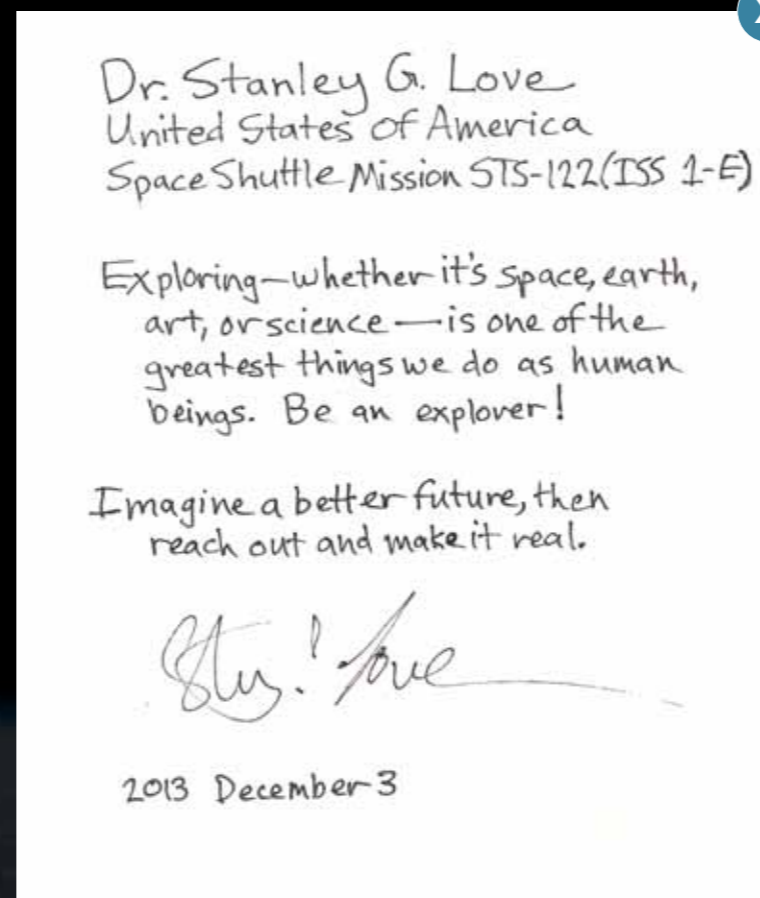 Dr. Stanley G. Love
United States of America
Space Shuttle Mission STS-122 (ISS 1-E)
Exploring—whether it's space, earth,
art, or science—is one of the
greatest things we do as human
beings. Be an explorer!
Imagine a better future, then
reach out and make it real.
Love
2013 December 3